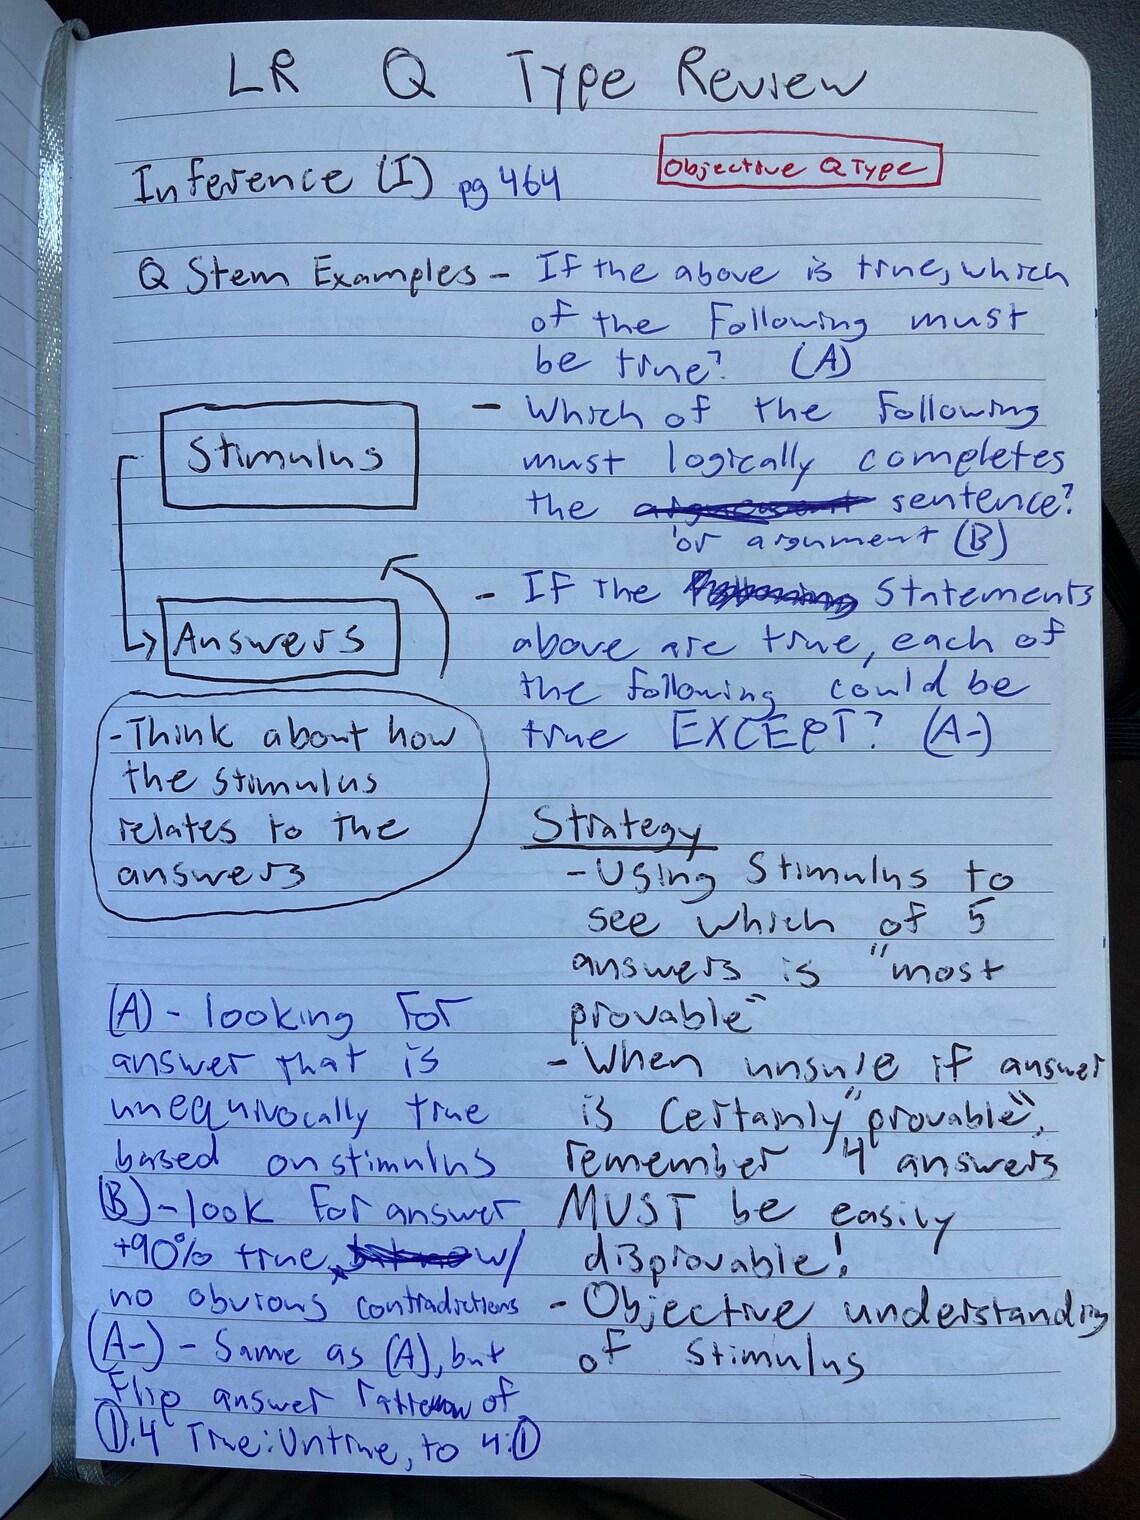 LR Q Type Review
Inference (I) pg 464
Objective Q Type
Q Stem Examples - If the above is true, which
of the following must
be true? (A)
- Which of the following
must logically completes
the sentence?
or argument (B)
- If the Statements
above are true, each of
the following could be
true EXCEPT? (A-)
Stimulus
Answers
-Think about how
the stimulus
relates to the
answers
Strategy
-Using Stimulus to
see which of 5
answers is "most
provable"
-When unsure if answer
is certainly "provable",
remember 4 answers
MUST be easily
disprovable!
-Objective understanding
of stimulus
(A) - looking for
answer that is
unequivocally true
based on stimulus
(B) - look for answer
+90% true, w/
no obvious contradictions
(A-) - Same as (A), but
flip answer of
1:4 True:Untrue, to 4:1